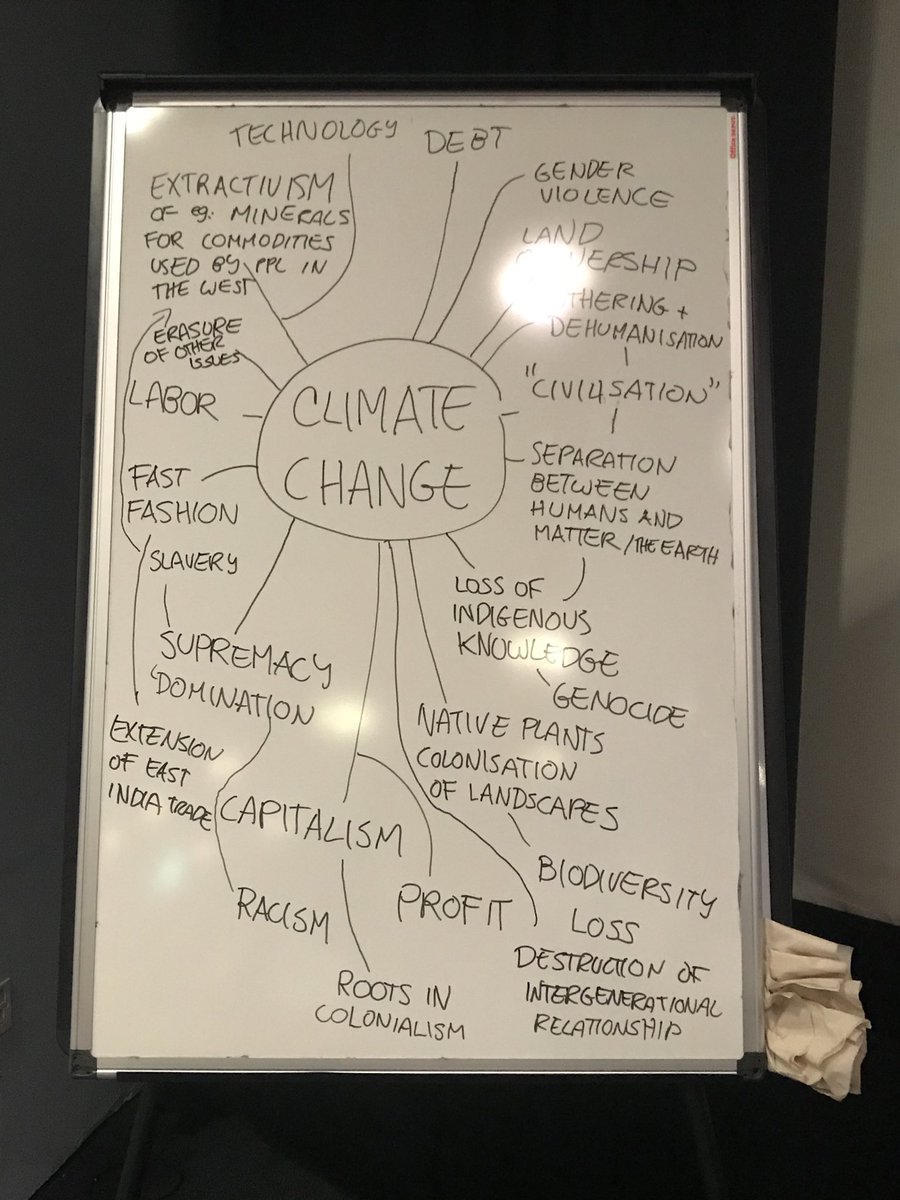 TECHNOLOGY
DEBT
GENDER
VIOLENCE
EXTRACTIVISM
OF eg. MINERALS
FOR COMMODITIES
USED BY PPL IN
THE WEST
LAND
OWNERSHIP
OTHERING +
DEHUMANISATION
ERASURE
OF OTHER
ISSUES
"CIVILISATION"
LABOR
CLIMATE
CHANGE
SEPARATION
BETWEEN
HUMANS AND
MATTER/THE EARTH
FAST
FASHION
SLAVERY
LOSS OF
INDIGENOUS
KNOWLEDGE
GENOCIDE
SUPREMACY
DOMINATION
NATIVE PLANTS
COLONISATION
OF LANDSCAPES
EXTENSION
OF EAST
INDIA TRADE
CAPITALISM
BIODIVERSITY
LOSS
RACISM
PROFIT
DESTRUCTION OF
INTERGENERATIONAL
RELATIONSHIP
ROOTS IN
COLONIALISM